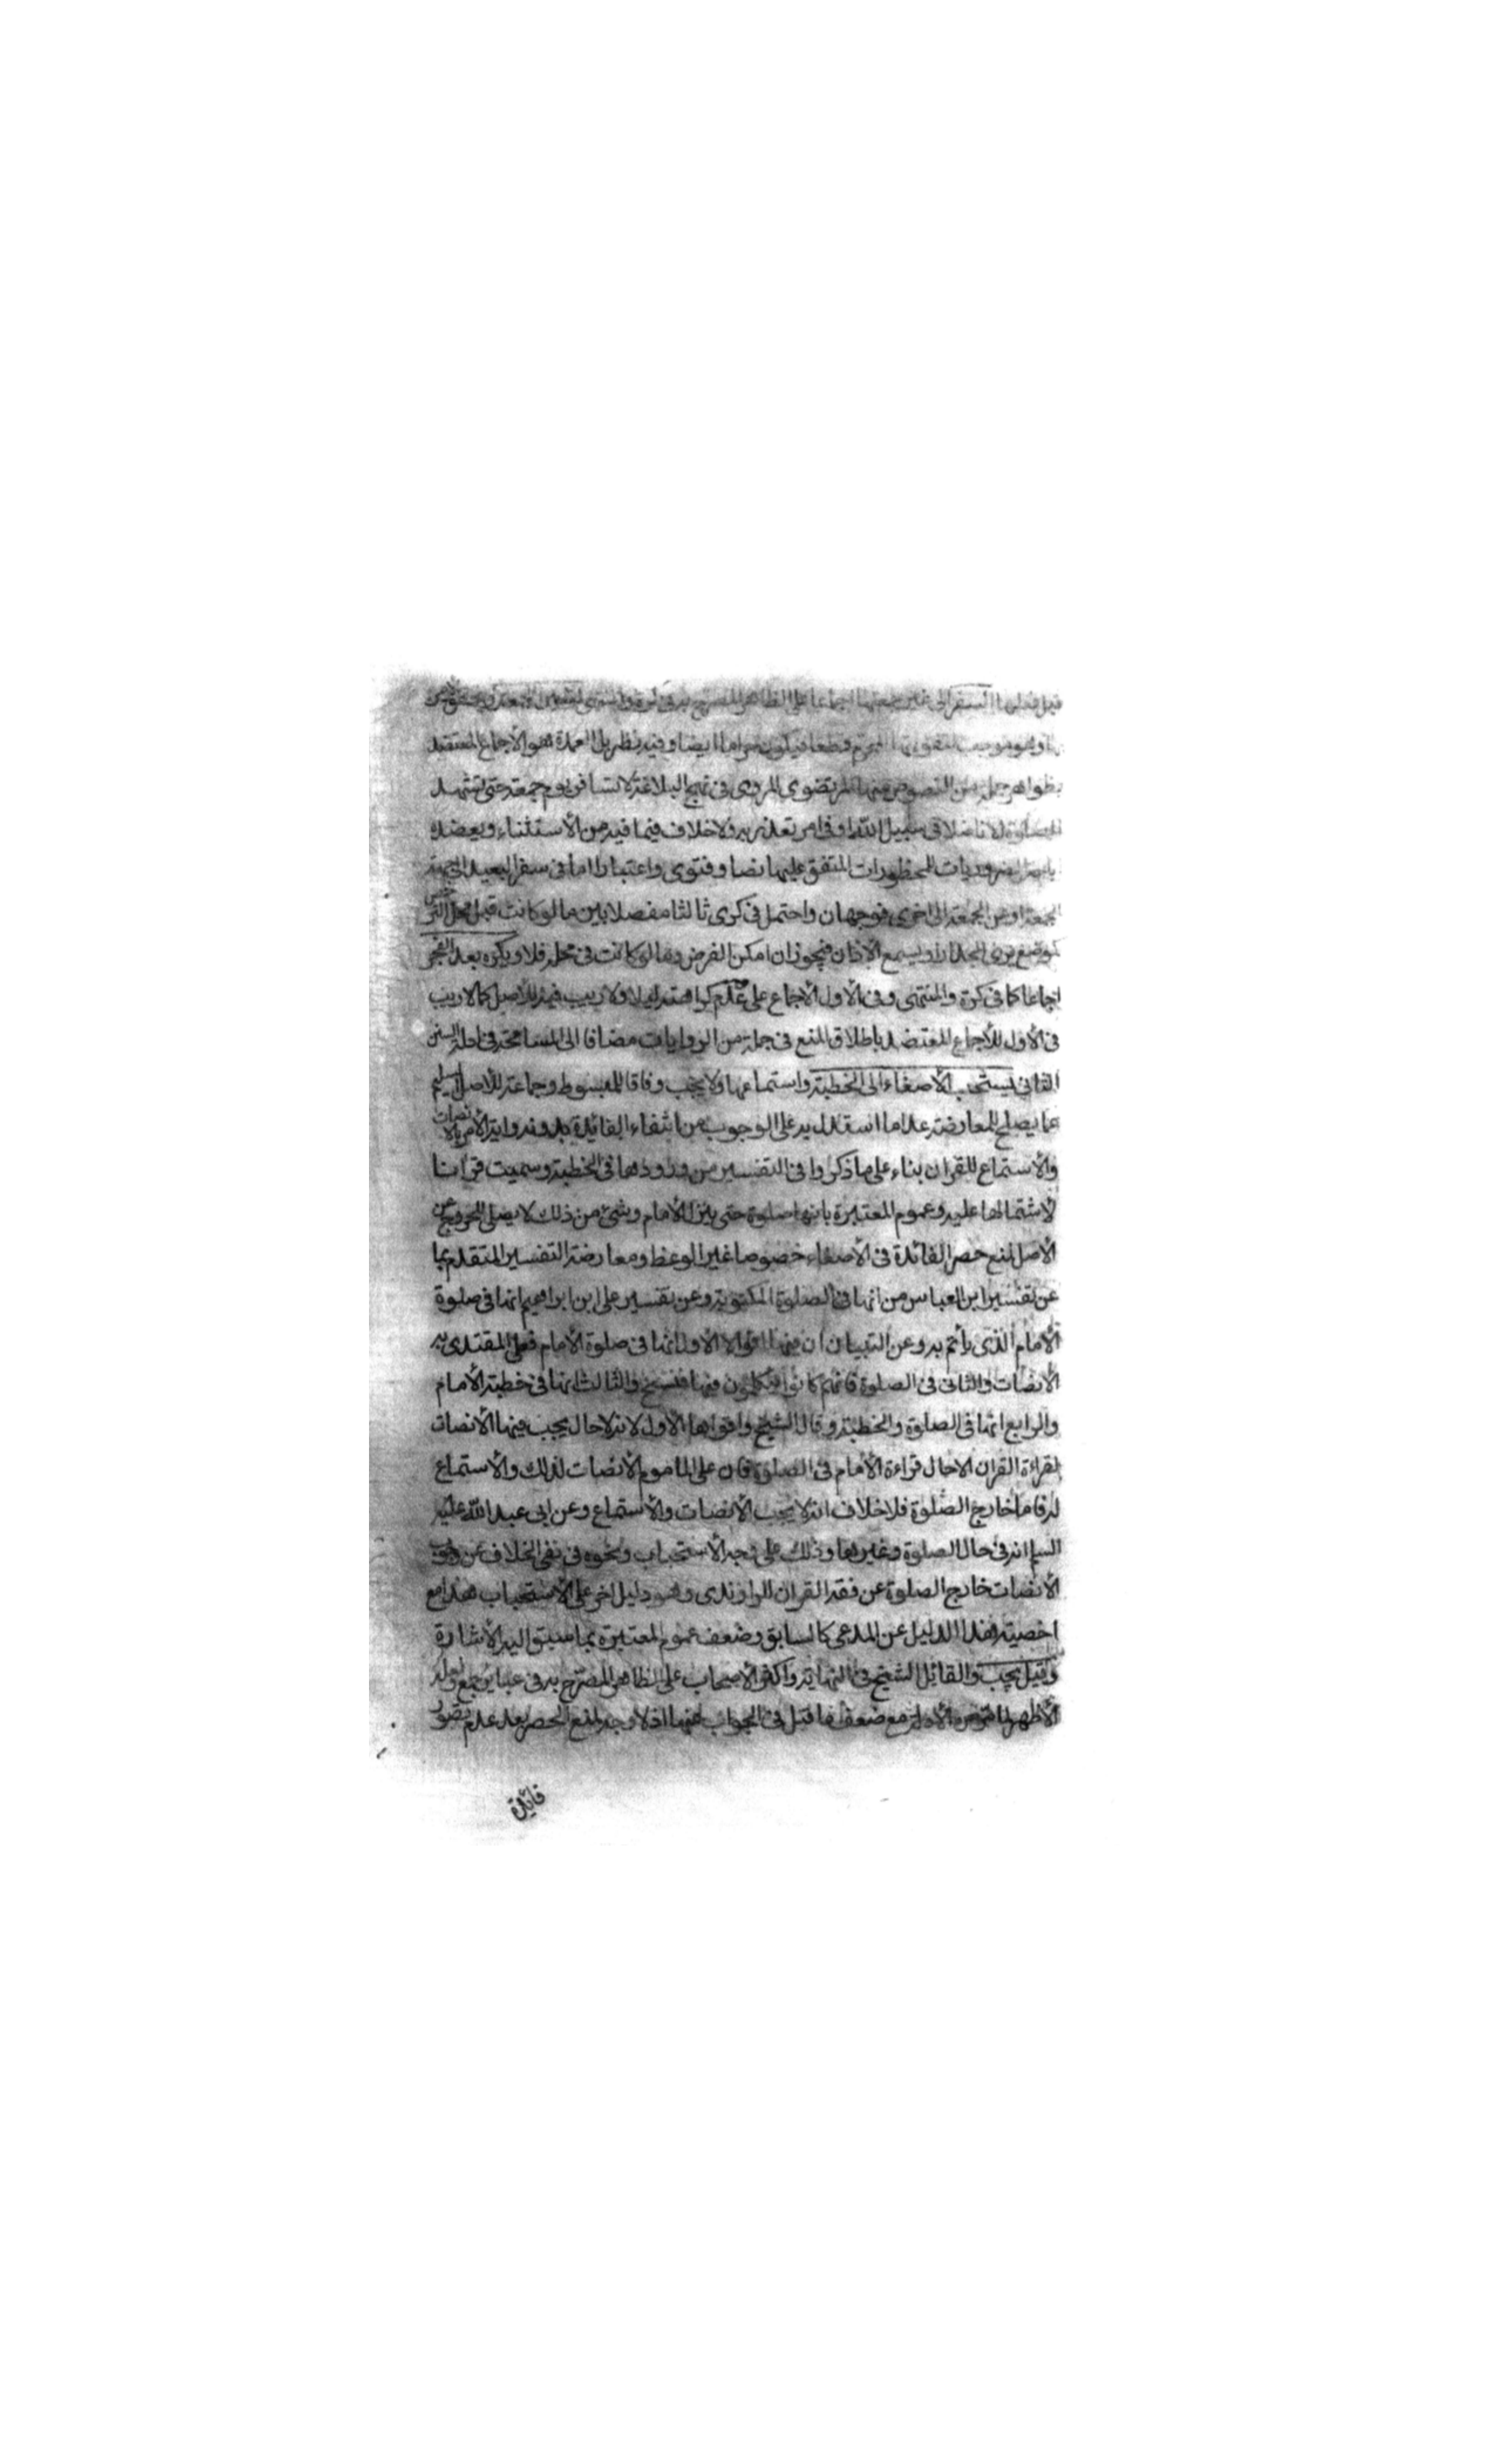 قبل فعلها السفر الى غير جهتها اجماعا على الظاهر المصرح به فى كرة والمنتهى
المحرم قطعا فيكون حراما ايضا وفيه نظر بل العمدة هو الأجماع المعتضد
بظواهر جملة من النصوص منها المرتضوى المروى فى نهج البلاغة لا تسافر فى يوم جمعة حتى تشهد
الصلوة الا ناضلا فى سبيل الله او فى امر تعذر به ولا خلاف فيما فيه من الأستثناء ويعضده
الضروريات للمحظورات المتفق عليها نصا وفتوى واعتبارا اما فى سفر البعيد الى جهة
الجمعة او عن الجمعة الى اخرى فوجهان واحتمل فى كرى ثالثا مفصلا بين ما لو كانت قبل محل الترخص
كموضع يرى الجدار او يسمع الأذان فيجوز ان امكن الفرض وما لو كانت فى محله فلا ويكره بعد الفجر
اجماعا كما فى كرة والمنتهى وفى الأول الأجماع على عدم كراهته ليلا ولا ريب فيه للأصل كما لا ريب
فى الأول للأجماع المعتضد باطلاق المنع فى جملة من الروايات مضافا الى المسامحة فى ادلة السنن
الثانى يستحب الأصغاء الى الخطبة واستماعها ولا يجب وفاقا للمبسوط وجماعة للأصل السليم
عما يصلح للمعارضة عدا ما استدل به على الوجوب من انتفاء الفائدة بدونه ورواية الأمر بالانصات
والاستماع للقران بناء على ما ذكروا فى التفسير من ورودهما فى الخطبة وسميت قرانا
لاشتمالها عليه وعموم المعتبرة بانها صلوة حتى ينزل الأمام وشئ من ذلك لا يصلح للخروج عن
الأصل لمنع حصر الفائدة فى الأصغاء خصوصا غير الوعظ ومعارضة التفسير المتقدم بما
عن تفسير ابن العباس من انها فى الصلوة المكتوبة وعن تفسير على ابن ابراهيم انها فى صلوة
الأمام الذى يأتم به وعن التبيان ان فيها اقوالا الاول انها فى صلوة الأمام فعلى المقتدى به
الأنصات والثانى فى الصلوة فانهم كانوا يتكلمون فيها فنسخ والثالث انها فى خطبة الأمام
والرابع انها فى الصلوة والخطبة وقال الشيخ واقواها الأول لانه لا حال يجب فيها الأنصات
لقراءة القران الا حال قراءة الأمام فى الصلوة فان على الماموم الأنصات لذلك والأستماع
له فاما خارج الصلوة فلا خلاف انه لا يجب الأنصات والأستماع وعن ابى عبد الله عليه
السلم انه فى حال الصلوة وغيرها وذلك على وجه الأستحباب ونحوه فى نفى الخلاف عن وجوب
الأنصات خارج الصلوة عن فقه القران للراوندى وهو دليل اخر على الأستحباب هذا مع
اخصية هذا الدليل عن المدعى كالسابق وضعف عموم المعتبرة بما سبق اليه الأشارة
وقيل يجب والقائل الشيخ فى النهاية واكثر الأصحاب على الظاهر المصرح به فى عبائر جمع ولعله
الأظهر مع ضعف ما قيل فى الجواب عنها اذ لا وجه لمنع الحصر بعد عدم تصور
فائدة